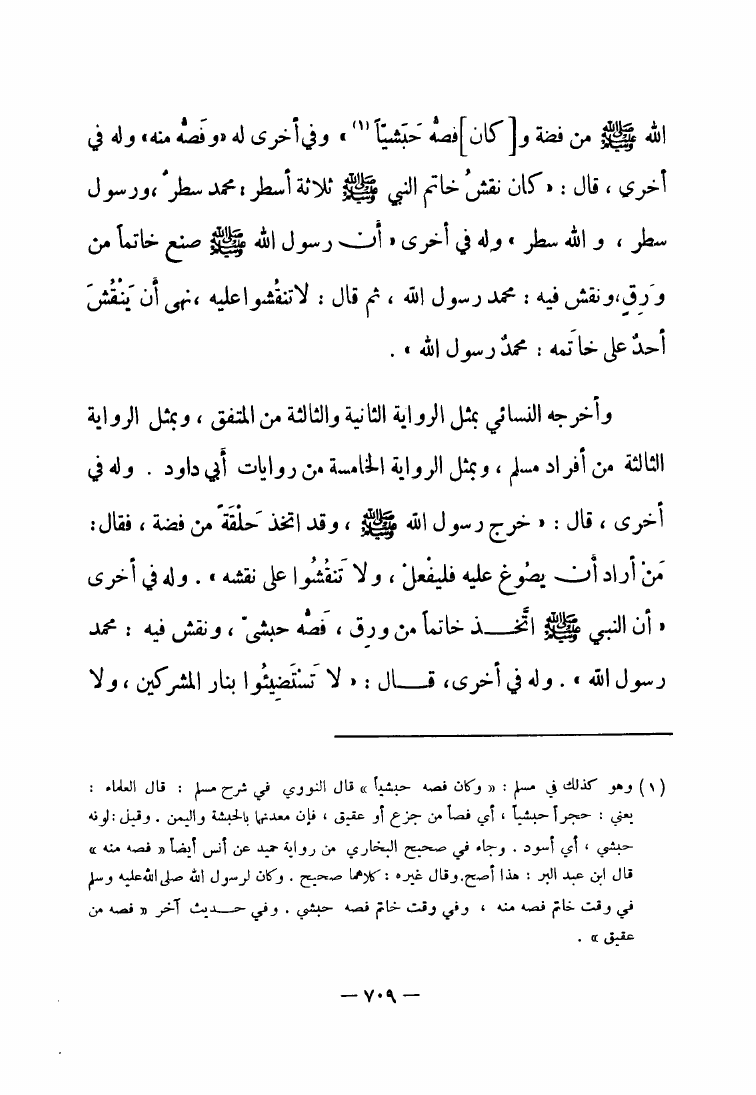 الله ﷺ من فضة و[كان]فصهُ حَبَشيّاً (١) » وفي أخرى له «وفَصُّه منه» وله في
أخرى ، قال : « كان نقشُ خاتم النبي ﷺ ثلاثة أسطر : محمد سطرٌ ،ورسول
سطر ، و الله سطر » وله في أخرى « أن رسول الله ﷺ صنع خاتماً من
وَرِقٍ،ونقش فيه : محمد رسول الله ، ثم قال : لاتنقُشوا عليه ،نهى أن يَنْقُشَ
أحدٌ على خاتَمه : محمدٌ رسول الله » .
وأخرجه النسائي بمثل الرواية الثانية والثالثة من المتفق ، وبمثل الرواية
الثالثة من أفراد مسلم ، وبمثل الرواية الخامسة من روايات أبي داود . وله في
أخرى ، قال : « خرج رسول الله ﷺ ، وقد اتخذ حَلْقَةً من فضة ، فقال:
مَنْ أراد أن يصُوغ عليه فليفعلْ ، ولا تَنقُشُوا على نقشه » . وله في أخرى
« أن النبي ﷺ اتَّخذ خاتماً من ورِق ، فَصُّه حبشيّ ، ونقش فيه : محمد
رسول الله » . وله في أخرى، قال : « لا تَسْتَضِيئُوا بنار المشركين ، ولا
(١) وهو كذلك في مسلم : « وكان فصه حبشياً » قال النووي في شرح مسلم : قال العلماء :
يعني : حجراً حبشياً ، أي فصاً من جزع أو عقيق ، فإن معدنها بالحبشة واليمن . وقيل : لونه
حبشي ، أي أسود . وجاء في صحيح البخاري من رواية حميد عن أنس أيضاً « فصه منه »
قال ابن عبد البر : هذا أصح.وقال غيره : كلاهما صحيح . وكان لرسول الله صلى الله عليه وسلم
في وقت خاتم فصه منه ، وفي وقت خاتم فصه حبشي . وفي حديث آخر « فصه من
عقيق » .
— ٧٠٩ —